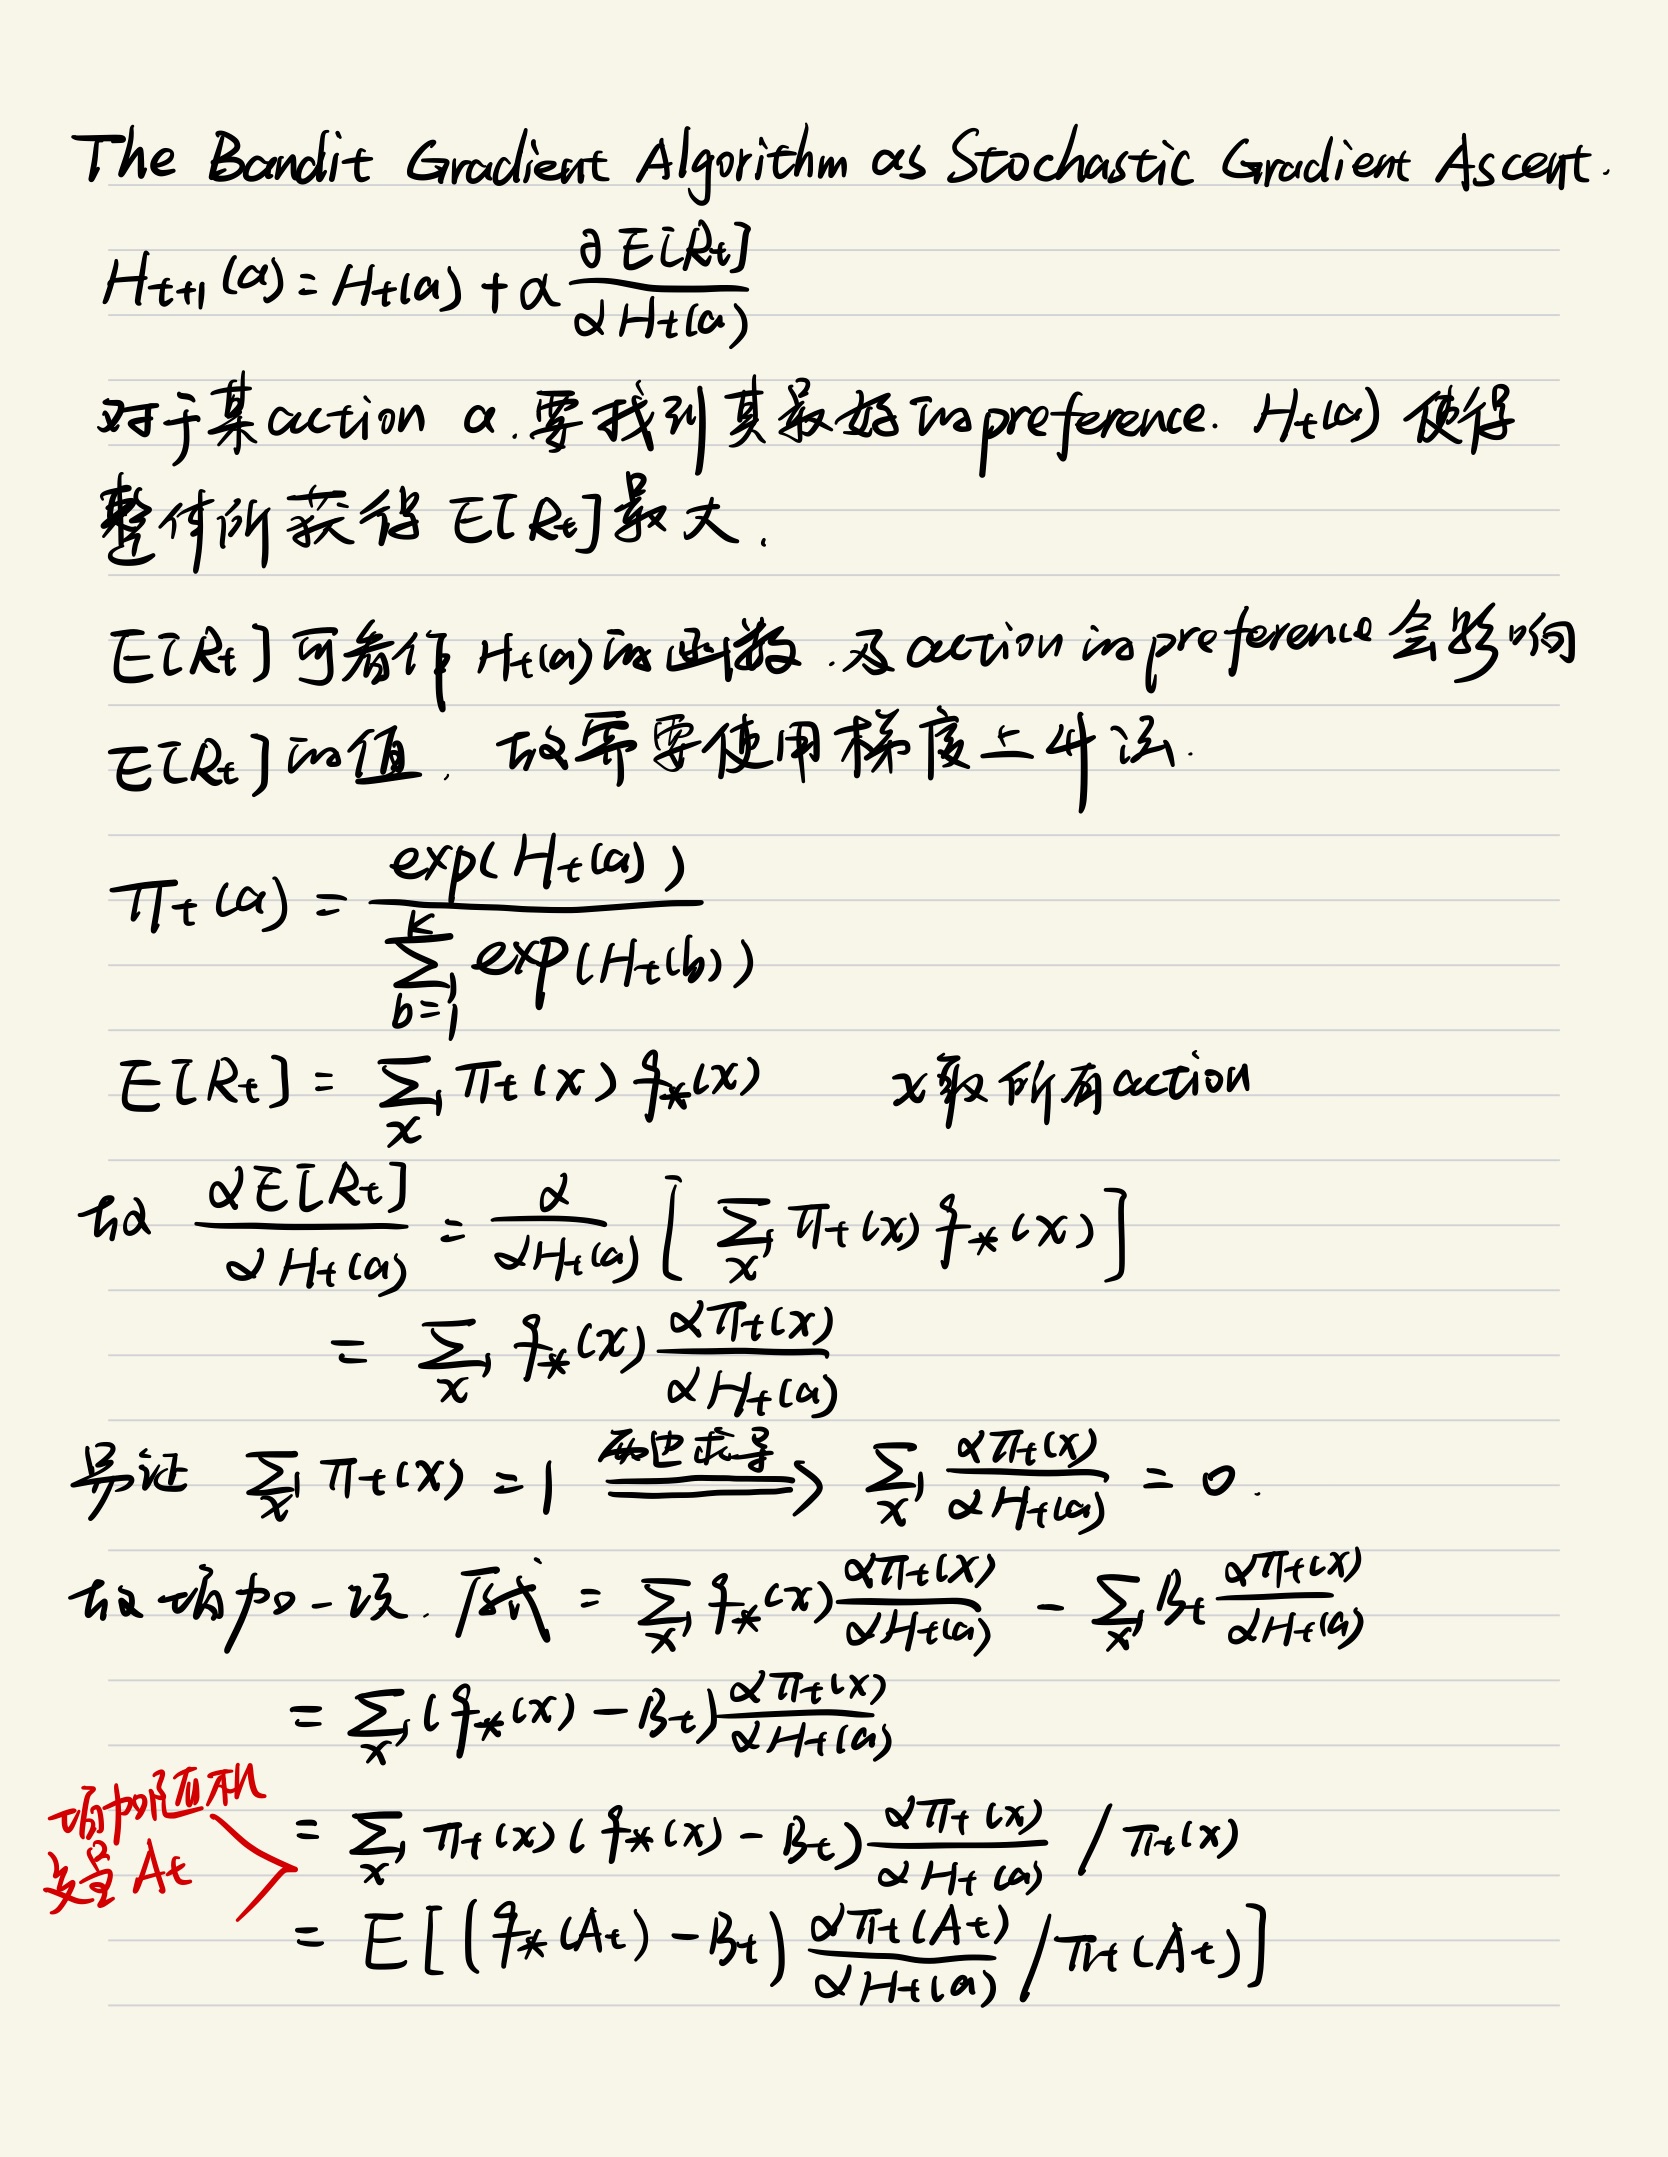 The Bandit Gradient Algorithm as Stochastic Gradient Ascent.
H_{t+1}(a) = H_t(a) + α ∂E[R_t] / αH_t(a)
对于某action a. 要找到其最好的preference. H_t(a) 使得
整体所获得 E[R_t] 最大.
E[R_t] 可看作 H_t(a) 的函数. 及 action 的 preference 会影响
E[R_t] 的值. 故需要使用梯度上升法.
π_t(a) = exp(H_t(a)) / Σ_{b=1}^{k} exp(H_t(b))
E[R_t] = Σ_x π_t(x) q_*(x) x取所有action
故 αE[R_t] / αH_t(a) = α / αH_t(a) [ Σ_x π_t(x) q_*(x) ]
= Σ_x q_*(x) απ_t(x) / αH_t(a)
易证 Σ_x π_t(x) = 1 两边求导 ⟹ Σ_x απ_t(x) / αH_t(a) = 0.
故增加一项. 原式 = Σ_x q_*(x) απ_t(x) / αH_t(a) - Σ_x B_t απ_t(x) / αH_t(a)
= Σ_x (q_*(x) - B_t) απ_t(x) / αH_t(a)
增加随机
变量 A_t
= Σ_x π_t(x) (q_*(x) - B_t) απ_t(x) / αH_t(a) / π_t(x)
= E[(q_*(A_t) - B_t) απ_t(A_t) / αH_t(a) / π_t(A_t)]